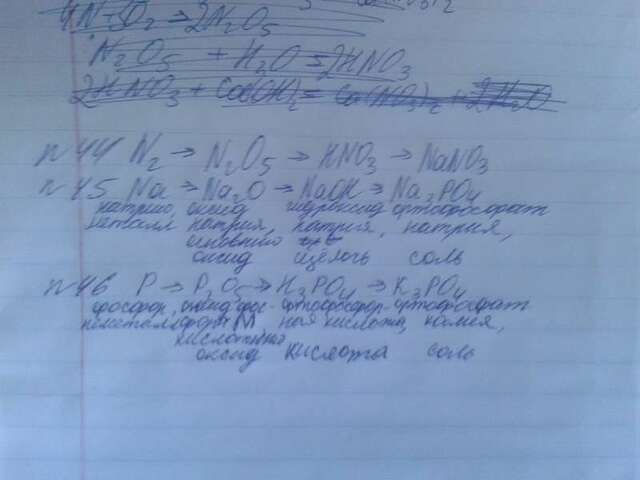 4N+5O2→2N2O5
N2O5 + H2O = 2HNO3
2HNO3 + Ca(OH)2 = Ca(NO3)2 + 2H2O
n 44 N2 → N2O5 → HNO3 → NaNO3
n 45 Na → Na2O → NaOH → Na3PO4
натрий, оксид гидроксид ортофосфат
металл натрия, натрия, натрия,
основный
оксид щелочь соль
n 46 P → P2O5 → H3PO4 → K3PO4
фосфор, оксид фос- ортофосфор- ортофосфат
неметалл фора ная кислота, калия,
кислотный
оксид кислота соль